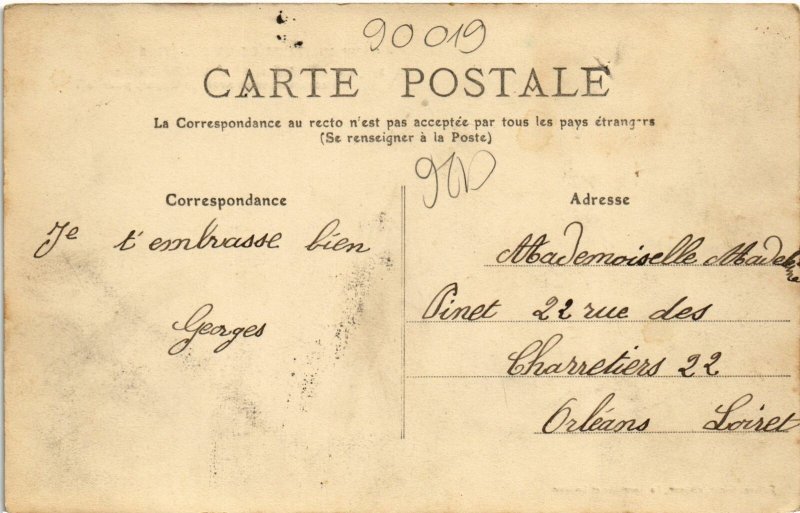 90019
CARTE POSTALE
La Correspondance au recto n'est pas acceptée par tous les pays étrangers
(Se renseigner à la Poste)
Correspondance
Je t'embrasse bien
Georges
Adresse
Mademoiselle Madeleine
Pinet 22 rue des
Charretiers 22
Orléans Loiret